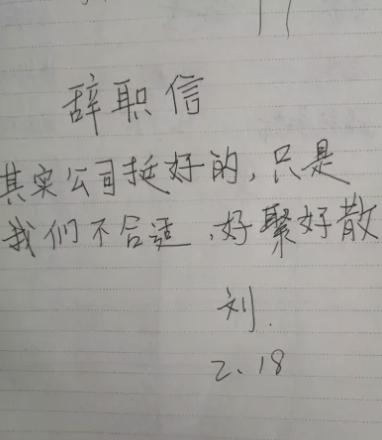 辞职信
其实公司挺好的，只是
我们不合适，好聚好散
刘.
2、18